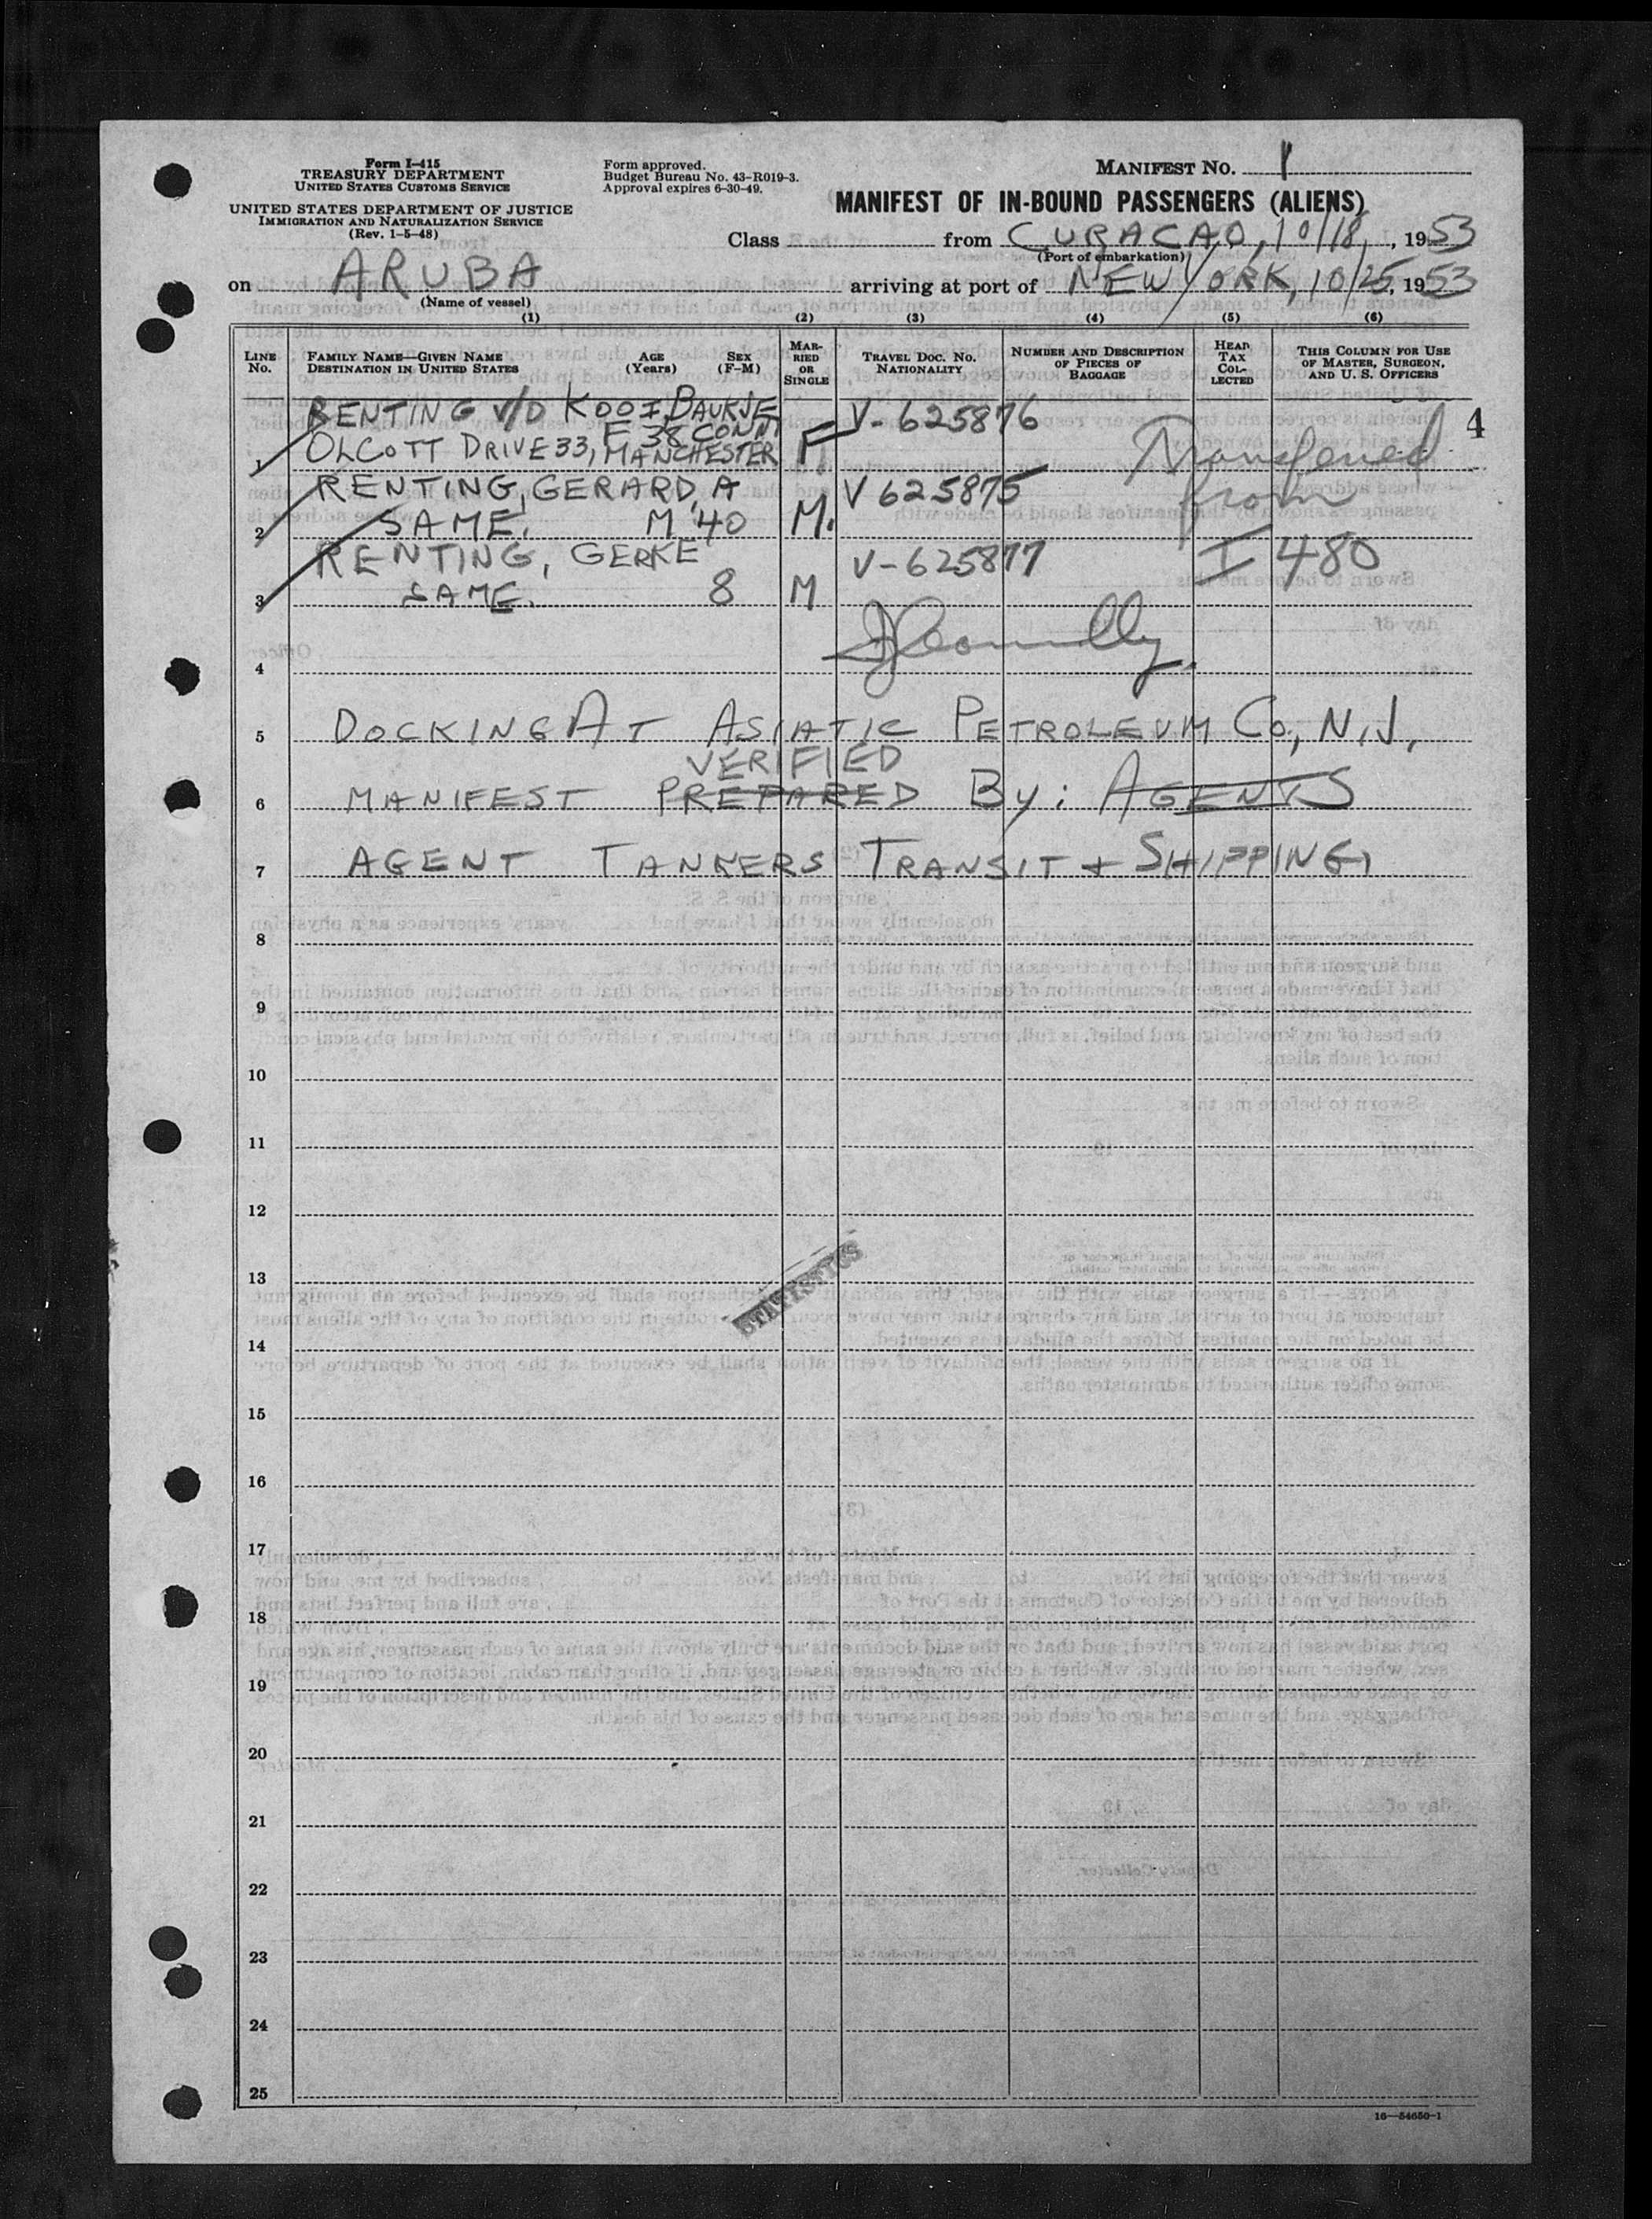 Form I-415
TREASURY DEPARTMENT
UNITED STATES CUSTOMS SERVICE
UNITED STATES DEPARTMENT OF JUSTICE
IMMIGRATION AND NATURALIZATION SERVICE
(Rev. 1-5-48)
Form approved.
Budget Bureau No. 43-R019-3.
Approval expires 6-30-49.
MANIFEST NO. 1
MANIFEST OF IN-BOUND PASSENGERS (ALIENS)
Class from CURACAO, 10/18, 1953
(Port of embarkation)
on ARUBA arriving at port of NEW YORK, 10/25, 1953
(Name of vessel)
(1) (2) (3) (4) (5) (6)
LINE NO.
FAMILY NAME—GIVEN NAME AGE SEX
DESTINATION IN UNITED STATES (Years) (F-M)
MARRIED OR SINGLE
TRAVEL DOC. NO. NATIONALITY
NUMBER AND DESCRIPTION OF PIECES OF BAGGAGE
HEAD TAX COLLECTED
THIS COLUMN FOR USE OF MASTER, SURGEON, AND U. S. OFFICERS
RENTING V/D KOOI BAUKJE V-625876 4
F 38 CONN
1 OLCOTT DRIVE 33, MANCHESTER F Transferred
RENTING, GERARD, A V 625875 from
2 SAME. M 40 M.
RENTING, GERKE V-625877 I 480
3 SAME. 8 M
4
5 DOCKING AT ASIATIC PETROLEUM CO, N.J.
VERIFIED
6 MANIFEST PREPARED BY: AGENTS
7 AGENT TANKERS TRANSIT + SHIPPING,
8
9
10
11
12
13
STATISTICS
14
15
16
17
18
19
20
21
22
23
24
25
16—54650-1